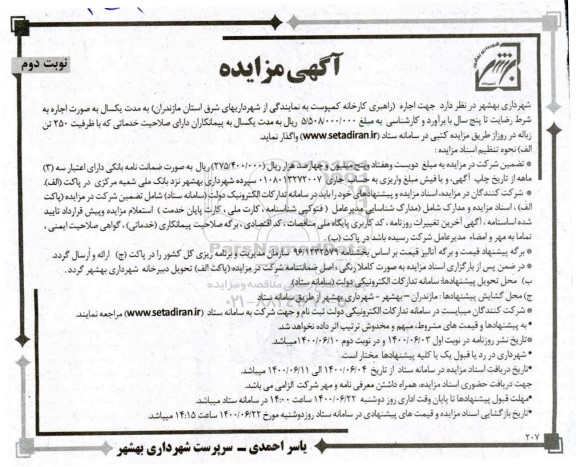 نوبت دوم
آگهی مزایده
شهرداری بهشهر در نظر دارد جهت اجاره (راهبری کارخانه کمپوست به نمایندگی از شهرداریهای شرق استان مازندران) به مدت یکسال به صورت اجاره به
شرط رضایت تا پنج سال با برآورد و کارشناسی به مبلغ ۵/۵۰۸/۰۰۰/۰۰۰ ریال به مدت یکسال به پیمانکاران دارای صلاحیت خدماتی که با ظرفیت ۲۵۰ تن
زباله در روزاز طریق مزایده کتبی در سامانه ستاد (www.setadiran.ir) واگذار نماید.
الف) نحوه تنظیم اسناد مزایده :
* تضمین شرکت در مزایده به مبلغ دویست وهفتاد وپنج میلیون و چهارصد هزار ریال (۲۷۵/۴۰۰/۰۰۰) ریال به صورت ضمانت نامه بانکی دارای اعتبار سه (۳)
ماهه از تاریخ چاپ آگهی، و یا فیش مبلغ واریزی به حساب جاری ۰۱۰۸۰۱۳۲۷۲۰۰۷ سپرده شهرداری بهشهر نزد بانک ملی شعبه مرکزی در پاکت (الف).
* شرکت کنندگان در مزایده، اسناد مزایده و پیشنهادهای خود را باید در سامانه تدارکات الکترونیک دولت (سامانه ستاد) شامل تضمین شرکت در مزایده (پاکت
الف) ، اسناد مزایده و مدارک شامل (مدارک شناسایی مدیرعامل ( فتوکپی شناسنامه ، کارت ملی ، کارت پایان خدمت ) استعلام مزایده وپیش قرارداد تایید
شده اساسنامه ، آگهی آخرین تغییرات روزنامه ، کد کاربری پایگاه ملی مناقصات ، کد اقتصادی ، برگه صلاحیت پیمانکاری (خدماتی) ، گواهی صلاحیت ایمنی ،
تماما به مهر و امضاء مدیرعامل شرکت رسیده باشد در پاکت (ب).
* برگه پیشنهاد قیمت و برگه آنالیز قیمت بر اساس بخشنامه ۹۶/۱۲۳۲۵۷۹ سازمان مدیریت و برنامه ریزی کل کشور را در پاکت (ج) ارائه و ارسال گردد.
* در ضمن پس از بارگزاری اسناد مزایده به صورت کاملا رنگی ، اصل ضمانتنامه شرکت در مزایده (پاکت الف) تحویل دبیرخانه شهرداری بهشهر گردد.
ب) محل تحویل پیشنهادها: سامانه تدارکات الکترونیکی دولت (سامانه ستاد).
ج) محل گشایش پیشنهادها : مازندران – بهشهر - شهرداری بهشهر از طریق سامانه ستاد
* شرکت کنندگان میبایست در سامانه تدارکات الکترونیکی دولت ثبت نام و جهت شرکت به سامانه ستاد (www.setadiran.ir) مراجعه نمایند.
* به پیشنهادها و قیمت های مشروط، مبهم و مخدوش ترتیب اثر داده نخواهد شد.
*تاریخ نشر روزنامه در نوبت اول ۱۴۰۰/۰۶/۰۳ و در نوبت دوم ۱۴۰۰/۰۶/۱۰میباشد.
*شهرداری در رد یا قبول یک یا کلیه پیشنهادها مختار است.
*تاریخ دریافت اسناد مزایده در سامانه ستاد از تاریخ ۱۴۰۰/۰۶/۰۴ الی ۱۴۰۰/۰۶/۱۱ میباشد.
جهت دریافت حضوری اسناد مزایده، همراه داشتن معرفی نامه و مهر شرکت الزامی می باشد.
*مهلت قبول پیشنهادها تا پایان وقت اداری روز دوشنبه ۱۴۰۰/۰۶/۲۲ ساعت ۱۴:۰۰ در سامانه ستاد میباشد.
*تاریخ بازگشایی اسناد مزایده و قیمت های پیشنهادی در سامانه ستاد روزدوشنبه مورخ ۱۴۰۰/۰۶/۲۲ ساعت ۱۴:۱۵ میباشد.
۲۰۷
یاسر احمدی – سرپرست شهرداری بهشهر